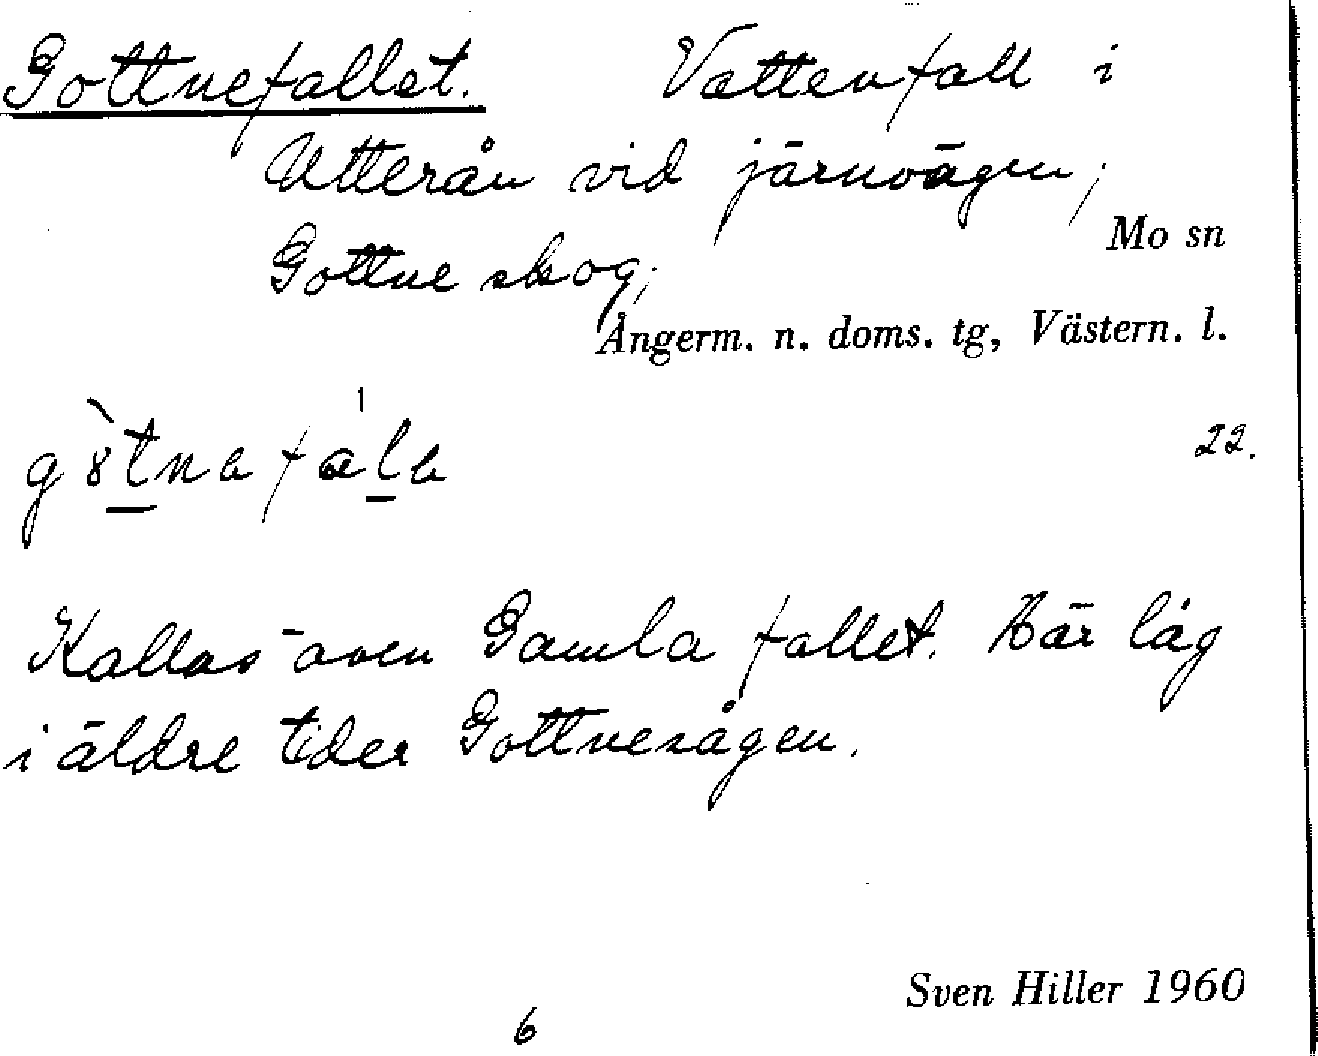 Gottnefallet. Vattenfall i
Utterån vid järnvägen,
Mo sn
Gottne skog,
Ångerm. n. doms. tg, Västern. l.
22.
Kallas även Gamla fallet. Här låg
i äldre tider Gottnesågen.
Sven Hiller 1960
6